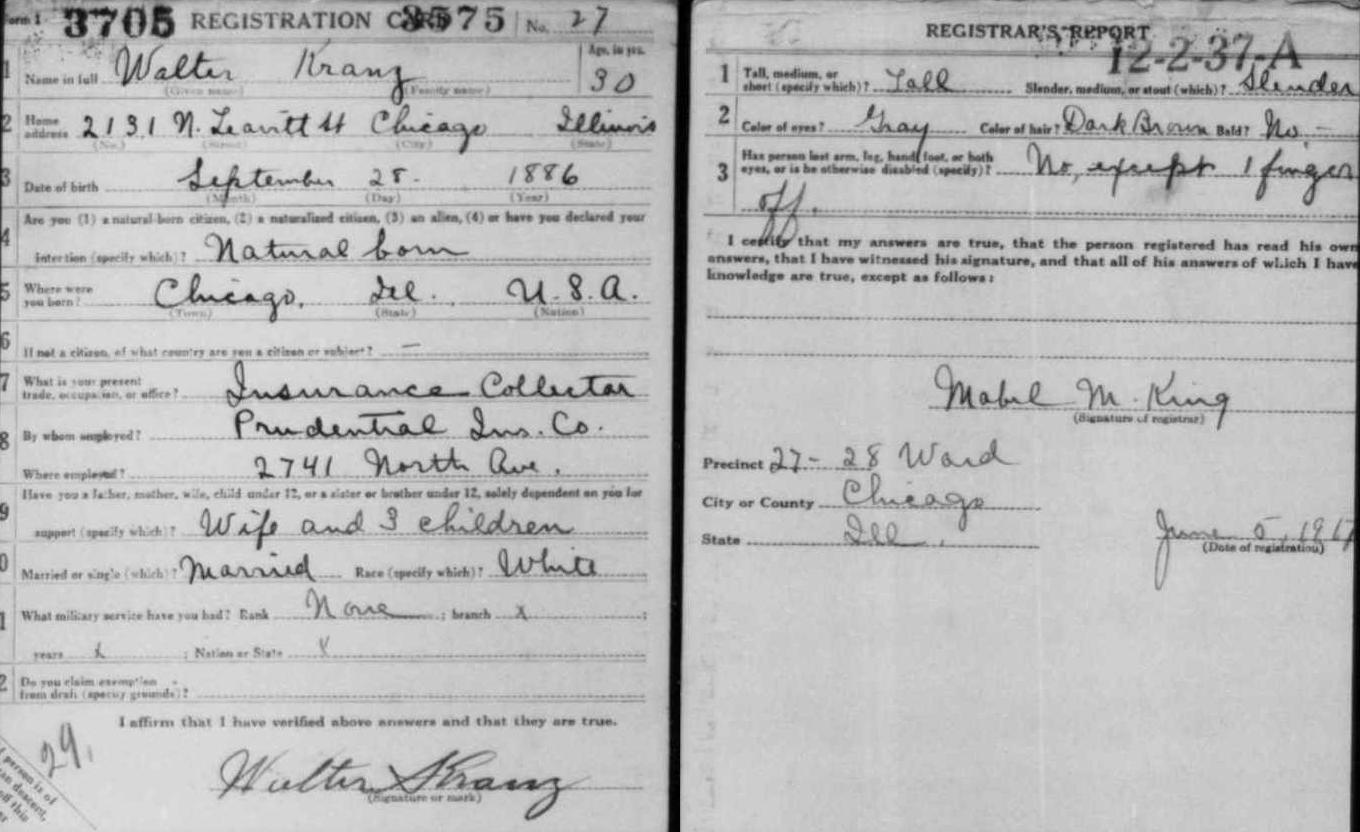 Form 1 3705 REGISTRATION CARD 3575 No. 27
1 Name in full Walter Kranz Age, in yrs. 30
(Given name) (Family name)
2 Home address 2131 N. Leavitt St Chicago Illinois
(No.) (Street) (City) (State)
3 Date of birth September 28. 1886
(Month) (Day) (Year)
Are you (1) a natural-born citizen, (2) a naturalized citizen, (3) an alien, (4) or have you declared your
4 intention (specify which)? Natural born
5 Where were you born? Chicago, Ill. U.S.A.
(Town) (State) (Nation)
6 If not a citizen, of what country are you a citizen or subject? —
7 What is your present trade, occupation, or office? Insurance Collector
8 By whom employed? Prudential Ins. Co.
Where employed? 2741 North Ave.
9 Have you a father, mother, wife, child under 12, or a sister or brother under 12, solely dependent on you for
support (specify which)? Wife and 3 children
0 Married or single (which)? Married Race (specify which)? White
1 What military service have you had? Rank None ; branch x ;
years x ; Nation or State x
2 Do you claim exemption from draft (specify grounds)?
I affirm that I have verified above answers and that they are true.
29.
Walter Kranz
(Signature or mark)
person is of
an descent,
off this
REGISTRAR'S REPORT
12-2-37-A
1 Tall, medium, or short (specify which)? Tall Slender, medium, or stout (which)? Slender
2 Color of eyes? Gray Color of hair? Dark Brown Bald? No -
3 Has person lost arm, leg, hand, foot, or both eyes, or is he otherwise disabled (specify)? No, except 1 finger
off.
I certify that my answers are true, that the person registered has read his own
answers, that I have witnessed his signature, and that all of his answers of which I have
knowledge are true, except as follows:
Mabel M. King
(Signature of registrar)
Precinct 27- 28 Ward
City or County Chicago
State Ill. June 5, 1917
(Date of registration)